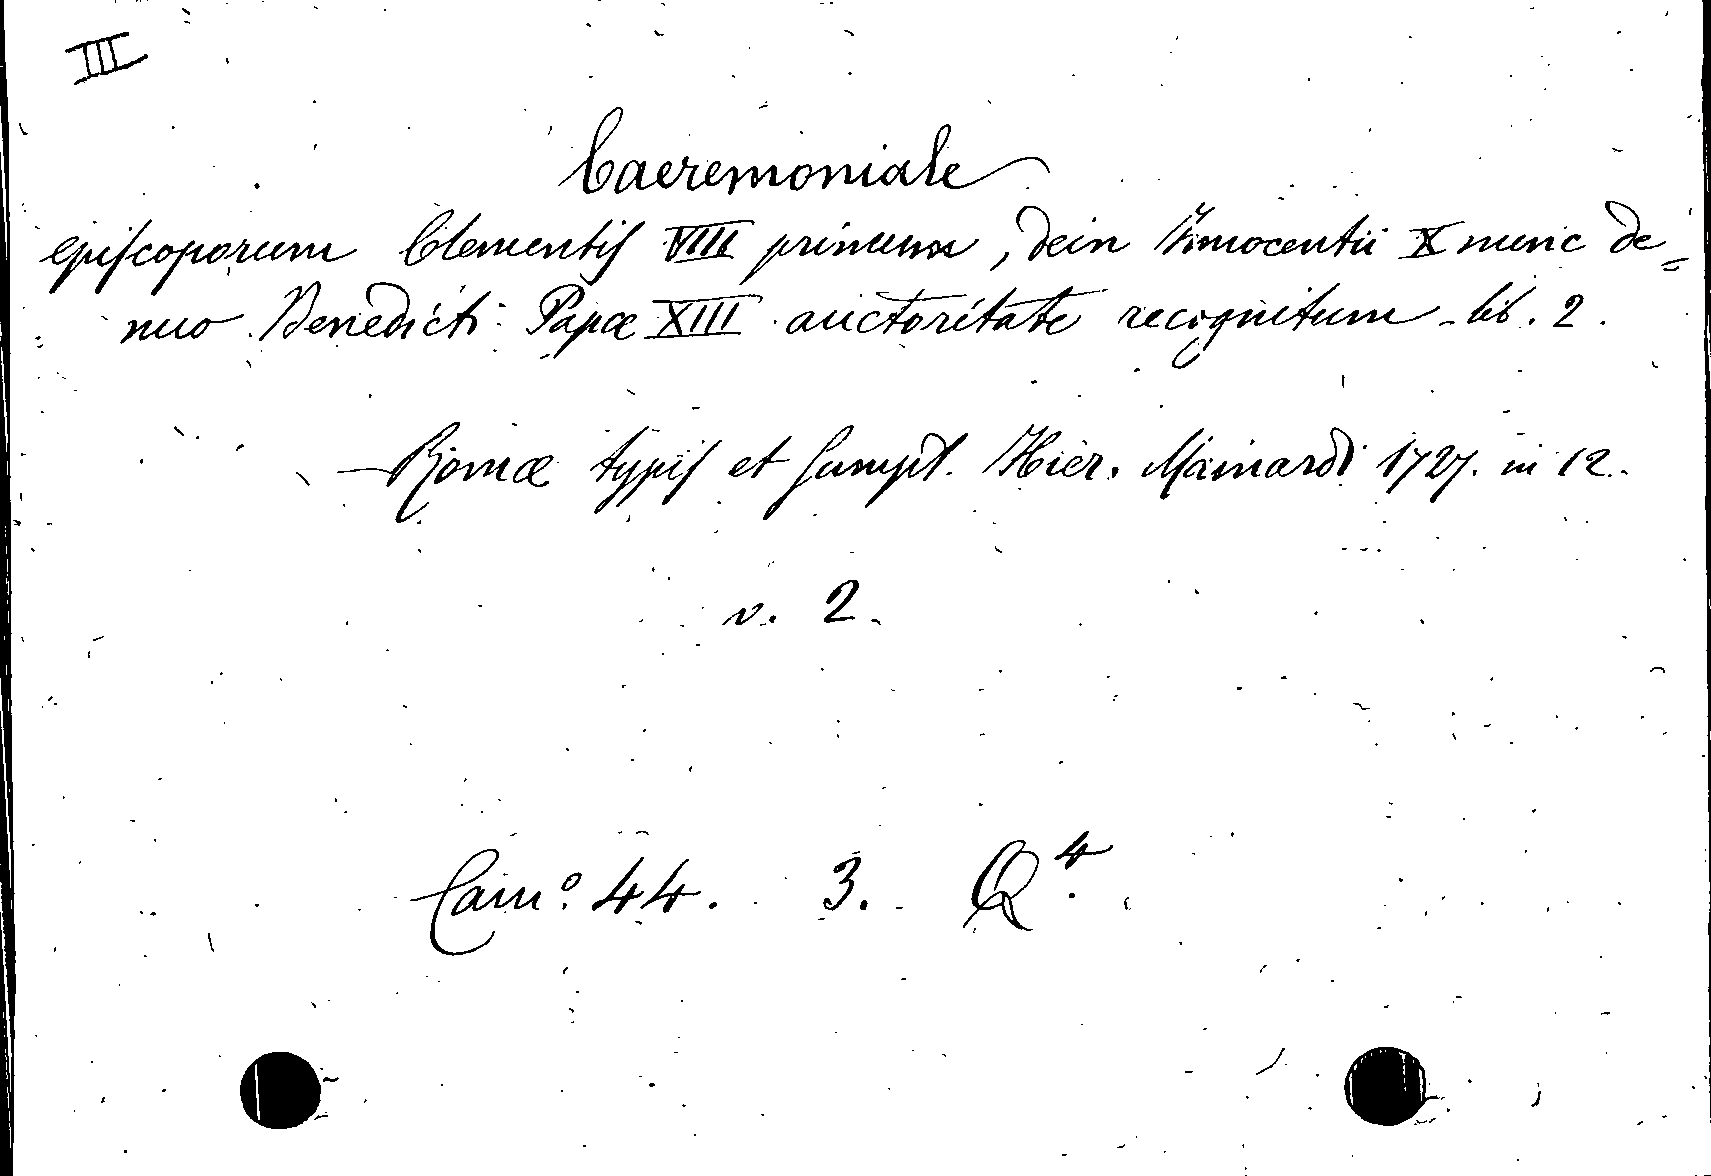 III
Caeremoniale
episcoporum Clementis VIII primum, dein Innocentii X nunc de=
nuo Benedicti Papæ XIII auctoritate recognitum - lib. 2.
- Romæ typis et sumpt. Hier. Mainardi 1727. in 12.
v. 2.
Cam.º 44. 3. Q⁴.